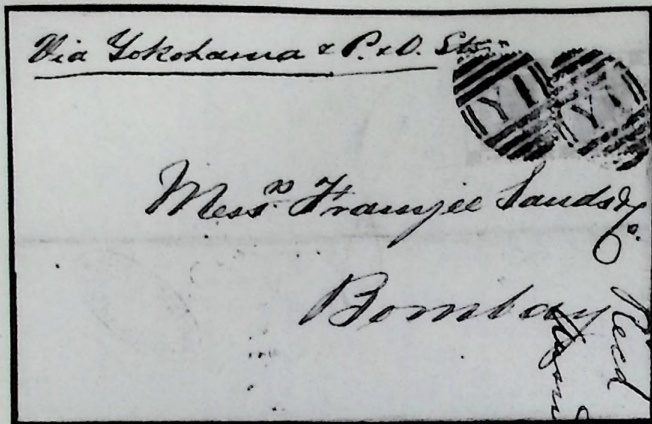 Via Yokohama & P. & O. Str
Y1 Y1
Messrs Framjee Sands & Co.
Bombay
Recd